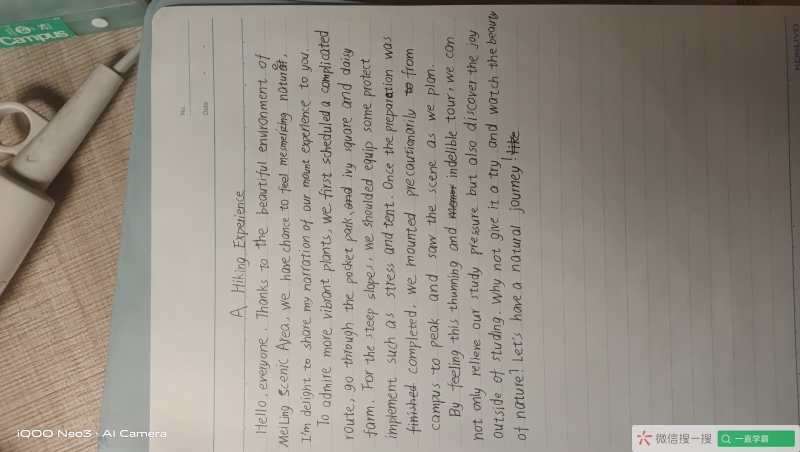 Campus
No.
Date
KOKUYO
A Hiking Experience
Hello, everyone. Thanks to the beautiful environment of
MeiLing Scenic Area, we have chance to feel mesmerizing nature.
I'm delight to share my narration of our mount experience to you.
To admire more vibrant plants, we first scheduled a complicated
route, go through the pocket park, and ivy square and daisy
farm. For the steep slopes, we shoulded equip some protect
implement such as stress and tent. Once the preparation was
finished completed, we mounted precautionarily to from
campus to peak and saw the scene as we plan.
By feeling this thunning and indelible tour, we can
not only relieve our study pressure but also discover the joy
outside of studing. Why not give it a try and watch the beauty
of nature? Let's have a natural journey! like
iQOO Neo3 · AI Camera
微信搜一搜
一直学霸